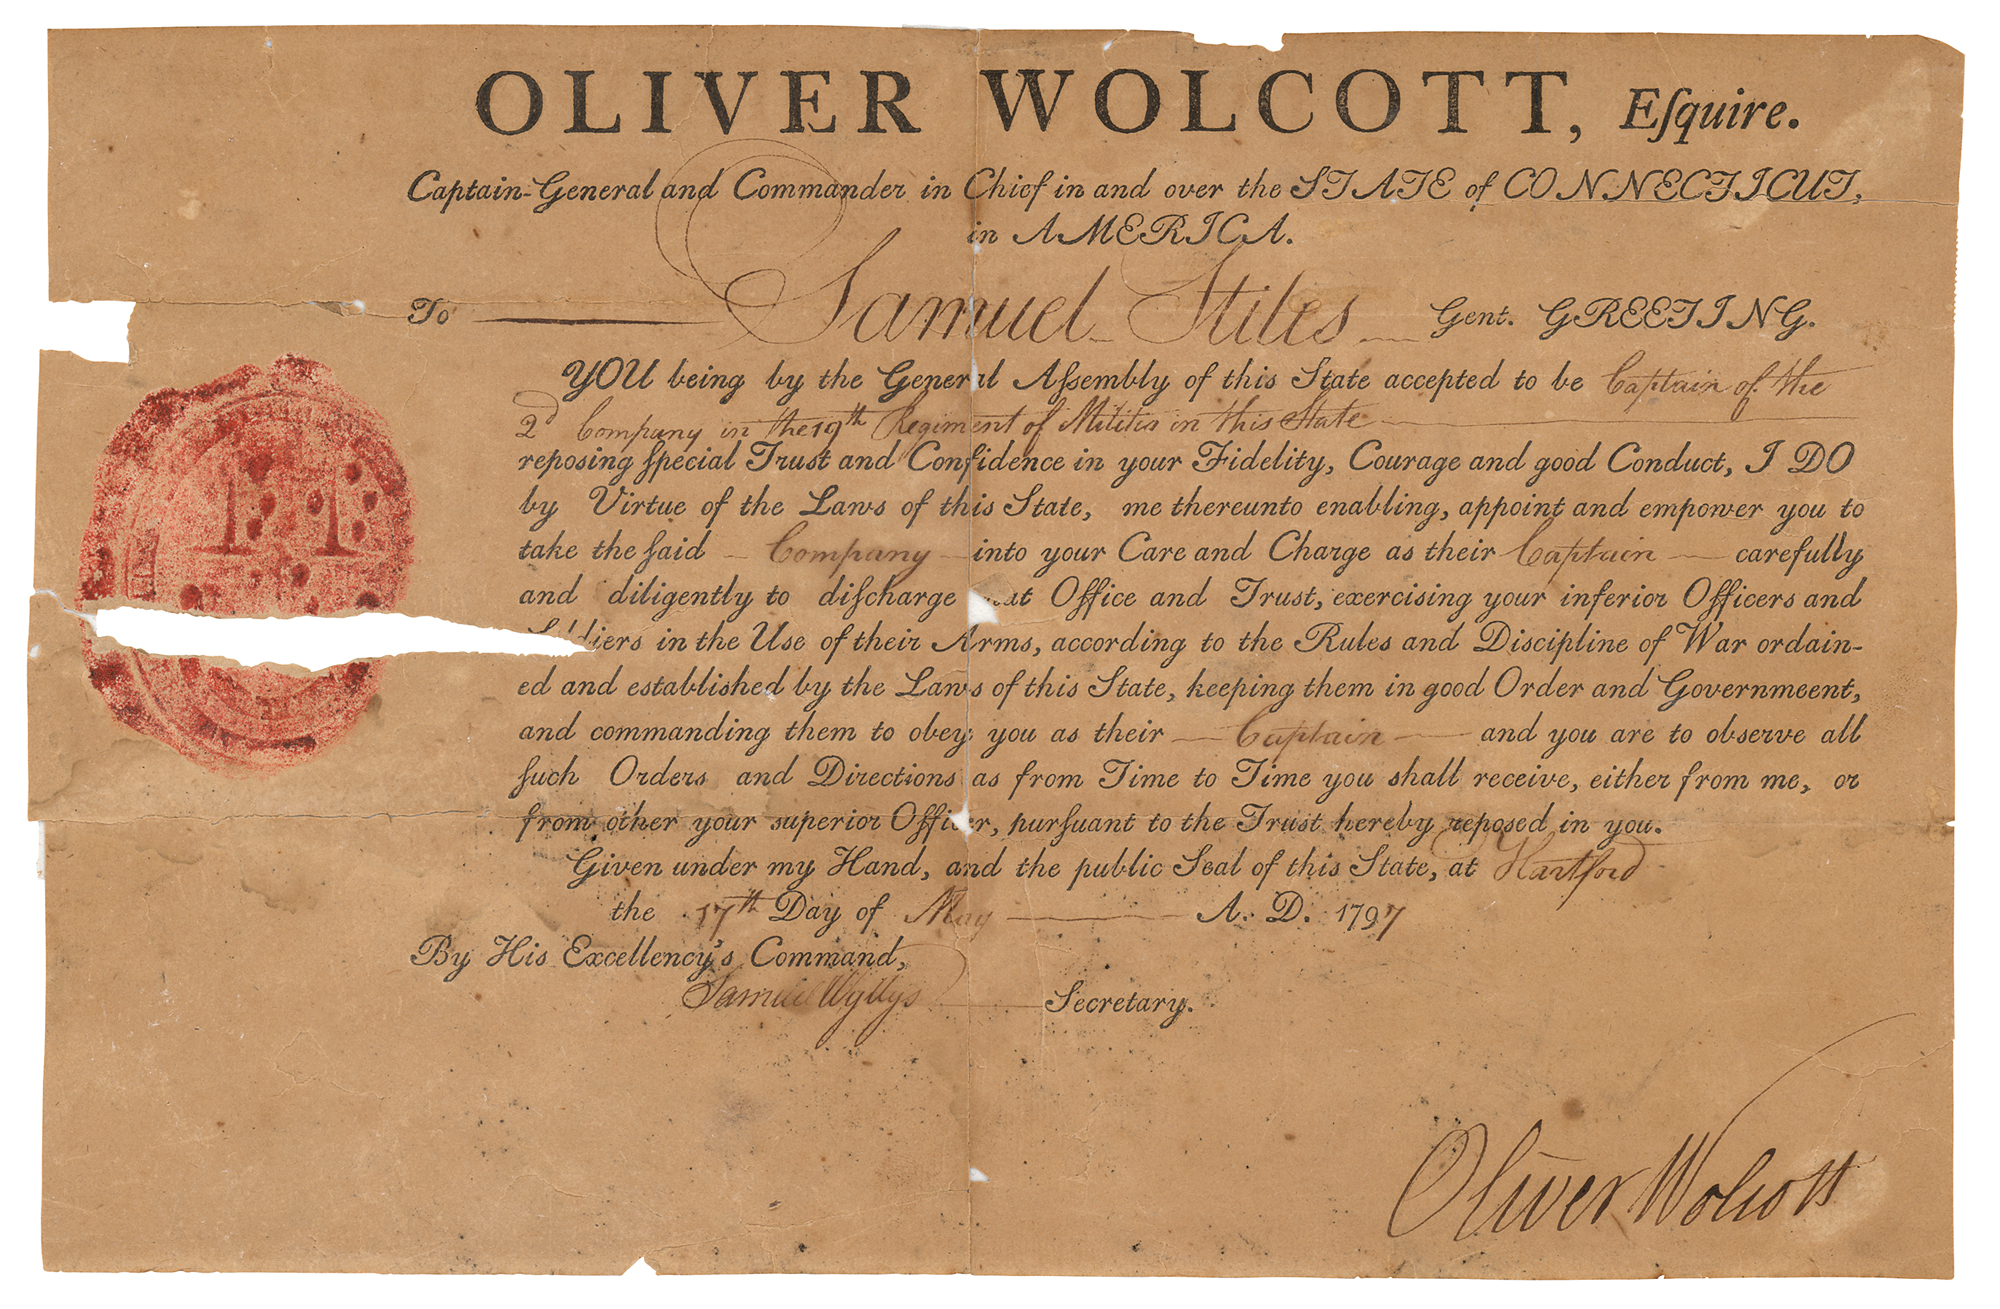 OLIVER WOLCOTT, Eſquire.
Captain-General and Commander in Chief in and over the STATE of CONNECTICUT,
in AMERICA.
To Samuel Stiles Gent. GREETING.
YOU being by the General Aſsembly of this State accepted to be Captain of the
2d Company in the 19th Regiment of Militia in this State
reposing ſpecial Trust and Confidence in your Fidelity, Courage and good Conduct, I DO
by Virtue of the Laws of this State, me thereunto enabling, appoint and empower you to
take the ſaid Company into your Care and Charge as their Captain carefully
and diligently to diſcharge Office and Trust, exercising your inferior Officers and
in the Use of their Arms, according to the Rules and Discipline of War ordain-
ed and established by the Laws of this State, keeping them in good Order and Governmeent,
and commanding them to obey you as their Captain and you are to observe all
ſuch Orders and Directions as from Time to Time you shall receive, either from me, or
from other your superior Officer, purſuant to the Trust hereby reposed in you.
Given under my Hand, and the public Seal of this State, at Hartford
the 17th Day of May A. D. 1797
By His Excellency's Command,
Samuel Wyllys Secretary.
Oliver Wolcott